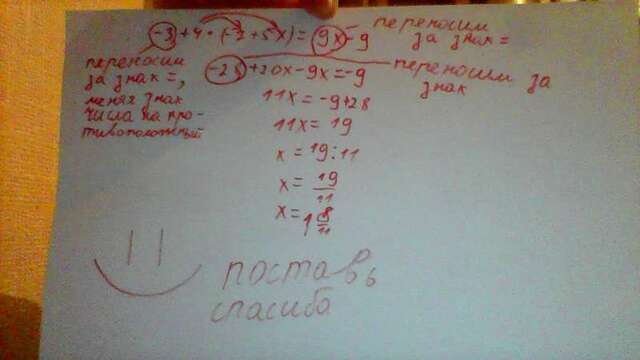 -3+4·(-7+5x)=9x-9
переносим
за знак =
переносим
за знак =,
меняя знак
числа на про-
тивоположный
+20x-9x=-9
переносим за
знак
11x=-9+28
11x=19
x=19:11
x=19/11
x=1 8/11
поставь
спасиба